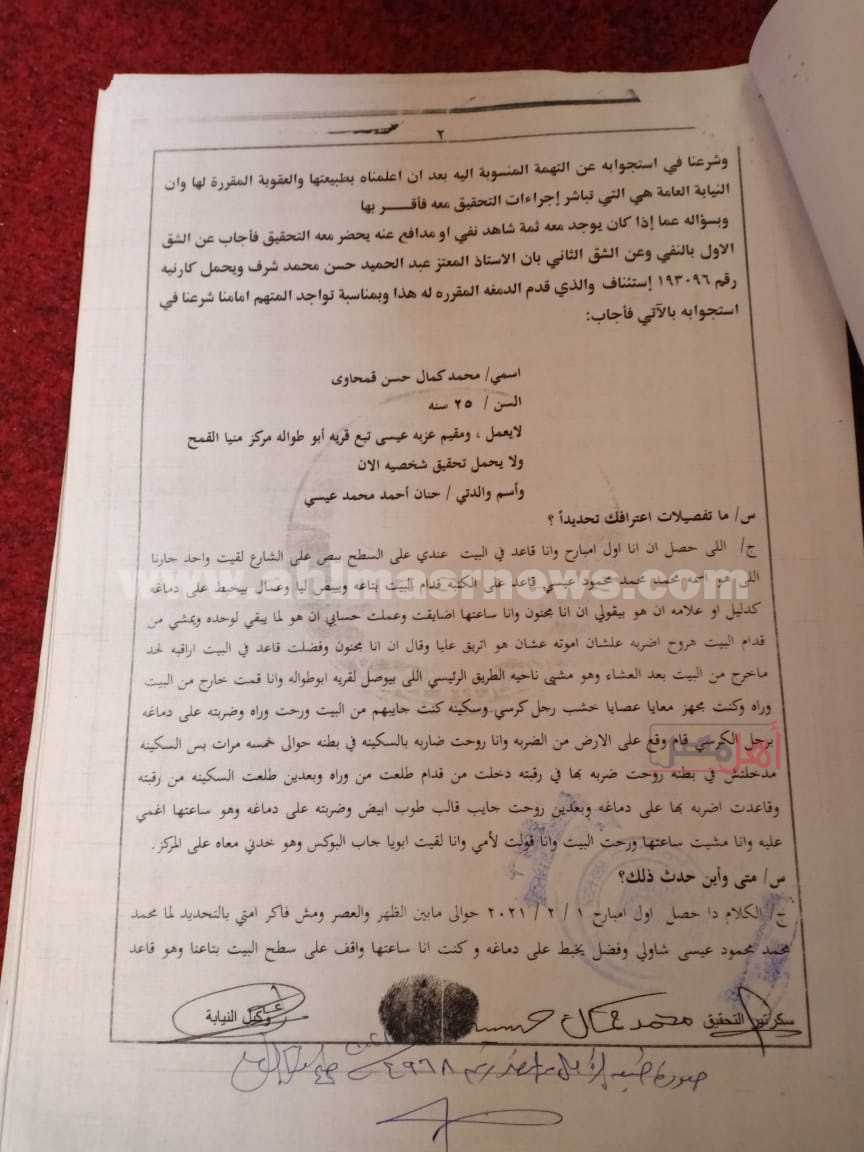 ٢
وشرعنا في استجوابه عن التهمة المنسوبة اليه بعد ان اعلمناه بطبيعتها والعقوبة المقررة لها وان
النيابة العامة هي التي تباشر إجراءات التحقيق معه فأقـــــر بها
وبسؤاله عما إذا كان يوجد معه ثمة شاهد نفي او مدافع عنه يحضر معه التحقيق فأجاب عن الشق
الاول بالنفي وعن الشق الثاني بان الاستاذ المعتز عبد الحميد حسن محمد شرف ويحمل كارنيه
رقم ١٩٣٠٩٦ إستئناف والذي قدم الدمغه المقرره له هذا وبمناسبة تواجد المتهم امامنا شرعنا في
استجوابه بالآتي فأجاب:
اسمي/ محمد كمال حسن قمحاوى
السن / ٢٥ سنه
لايعمل ، ومقيم عزبه عيسى تبع قريه أبو طواله مركز منيا القمح
ولا يحمل تحقيق شخصيه الان
وأسم والدتي / حنان أحمد محمد عيسي
س/ ما تفصيلات اعترافك تحديداً ؟
ج/ اللى حصل ان انا اول امبارح وانا قاعد في البيت عندي على السطح ببص على الشارع لقيت واحد جارنا
اللى هو اسمه محمد محمد محمود عيسي قاعد على الكنبه قدام البيت بتاعه وبيبص ليا وعمال بيخبط على دماغه
كدليل او علامه ان هو بيقولي ان انا مجنون وانا ساعتها اضايقت وعملت حسابي ان هو لما يبقي لوحده ويمشي من
قدام البيت هروح اضربه علشان اموته عشان هو اتريق عليا وقال ان انا مجنون وفضلت قاعد في البيت اراقبه لحد
ماخرج من البيت بعد العشاء وهو مشبى ناحيه الطريق الرئيسي اللى بيوصل لقريه ابوطواله وانا قمت خارج من البيت
وراه وكنت مجهز معايا عصايا خشب رجل كرسي وسكينه كنت جايبهم من البيت ورحت وراه وضربته على دماغه
برجل الكرسي قام وقع على الارض من الضربه وانا روحت ضاربه بالسكينه في بطنه حوالى خمسه مرات بس السكينه
مدخلتش في بطنه روحت ضربه بها في رقبته دخلت من قدام طلعت من وراه وبعدين طلعت السكينه من رقبته
وقاعدت اضربه بها على دماغه وبعدين روحت جايب قالب طوب ابيض وضربته على دماغه وهو ساعتها اغمي
عليه وانا مشيت ساعتها ورحت البيت وانا قولت لأمي وانا لقيت ابويا جاب البوكس وهو خدني معاه على المركز.
س/ متى وأين حدث ذلك؟
ج/ الكلام دا حصل اول امبارح ١ / ٢ / ٢٠٢١ حوالى مابين الظهر والعصر ومش فاكر امتي بالتحديد لما محمد
محمد محمود عيسى شاولي وفضل يخبط على دماغه و كنت انا ساعتها واقف على سطح البيت بتاعنا وهو قاعد
سكرتير التحقيق
محمد كمال حسن
وكيل النيابة
www.ahlmasrnews.com
أهل مصر